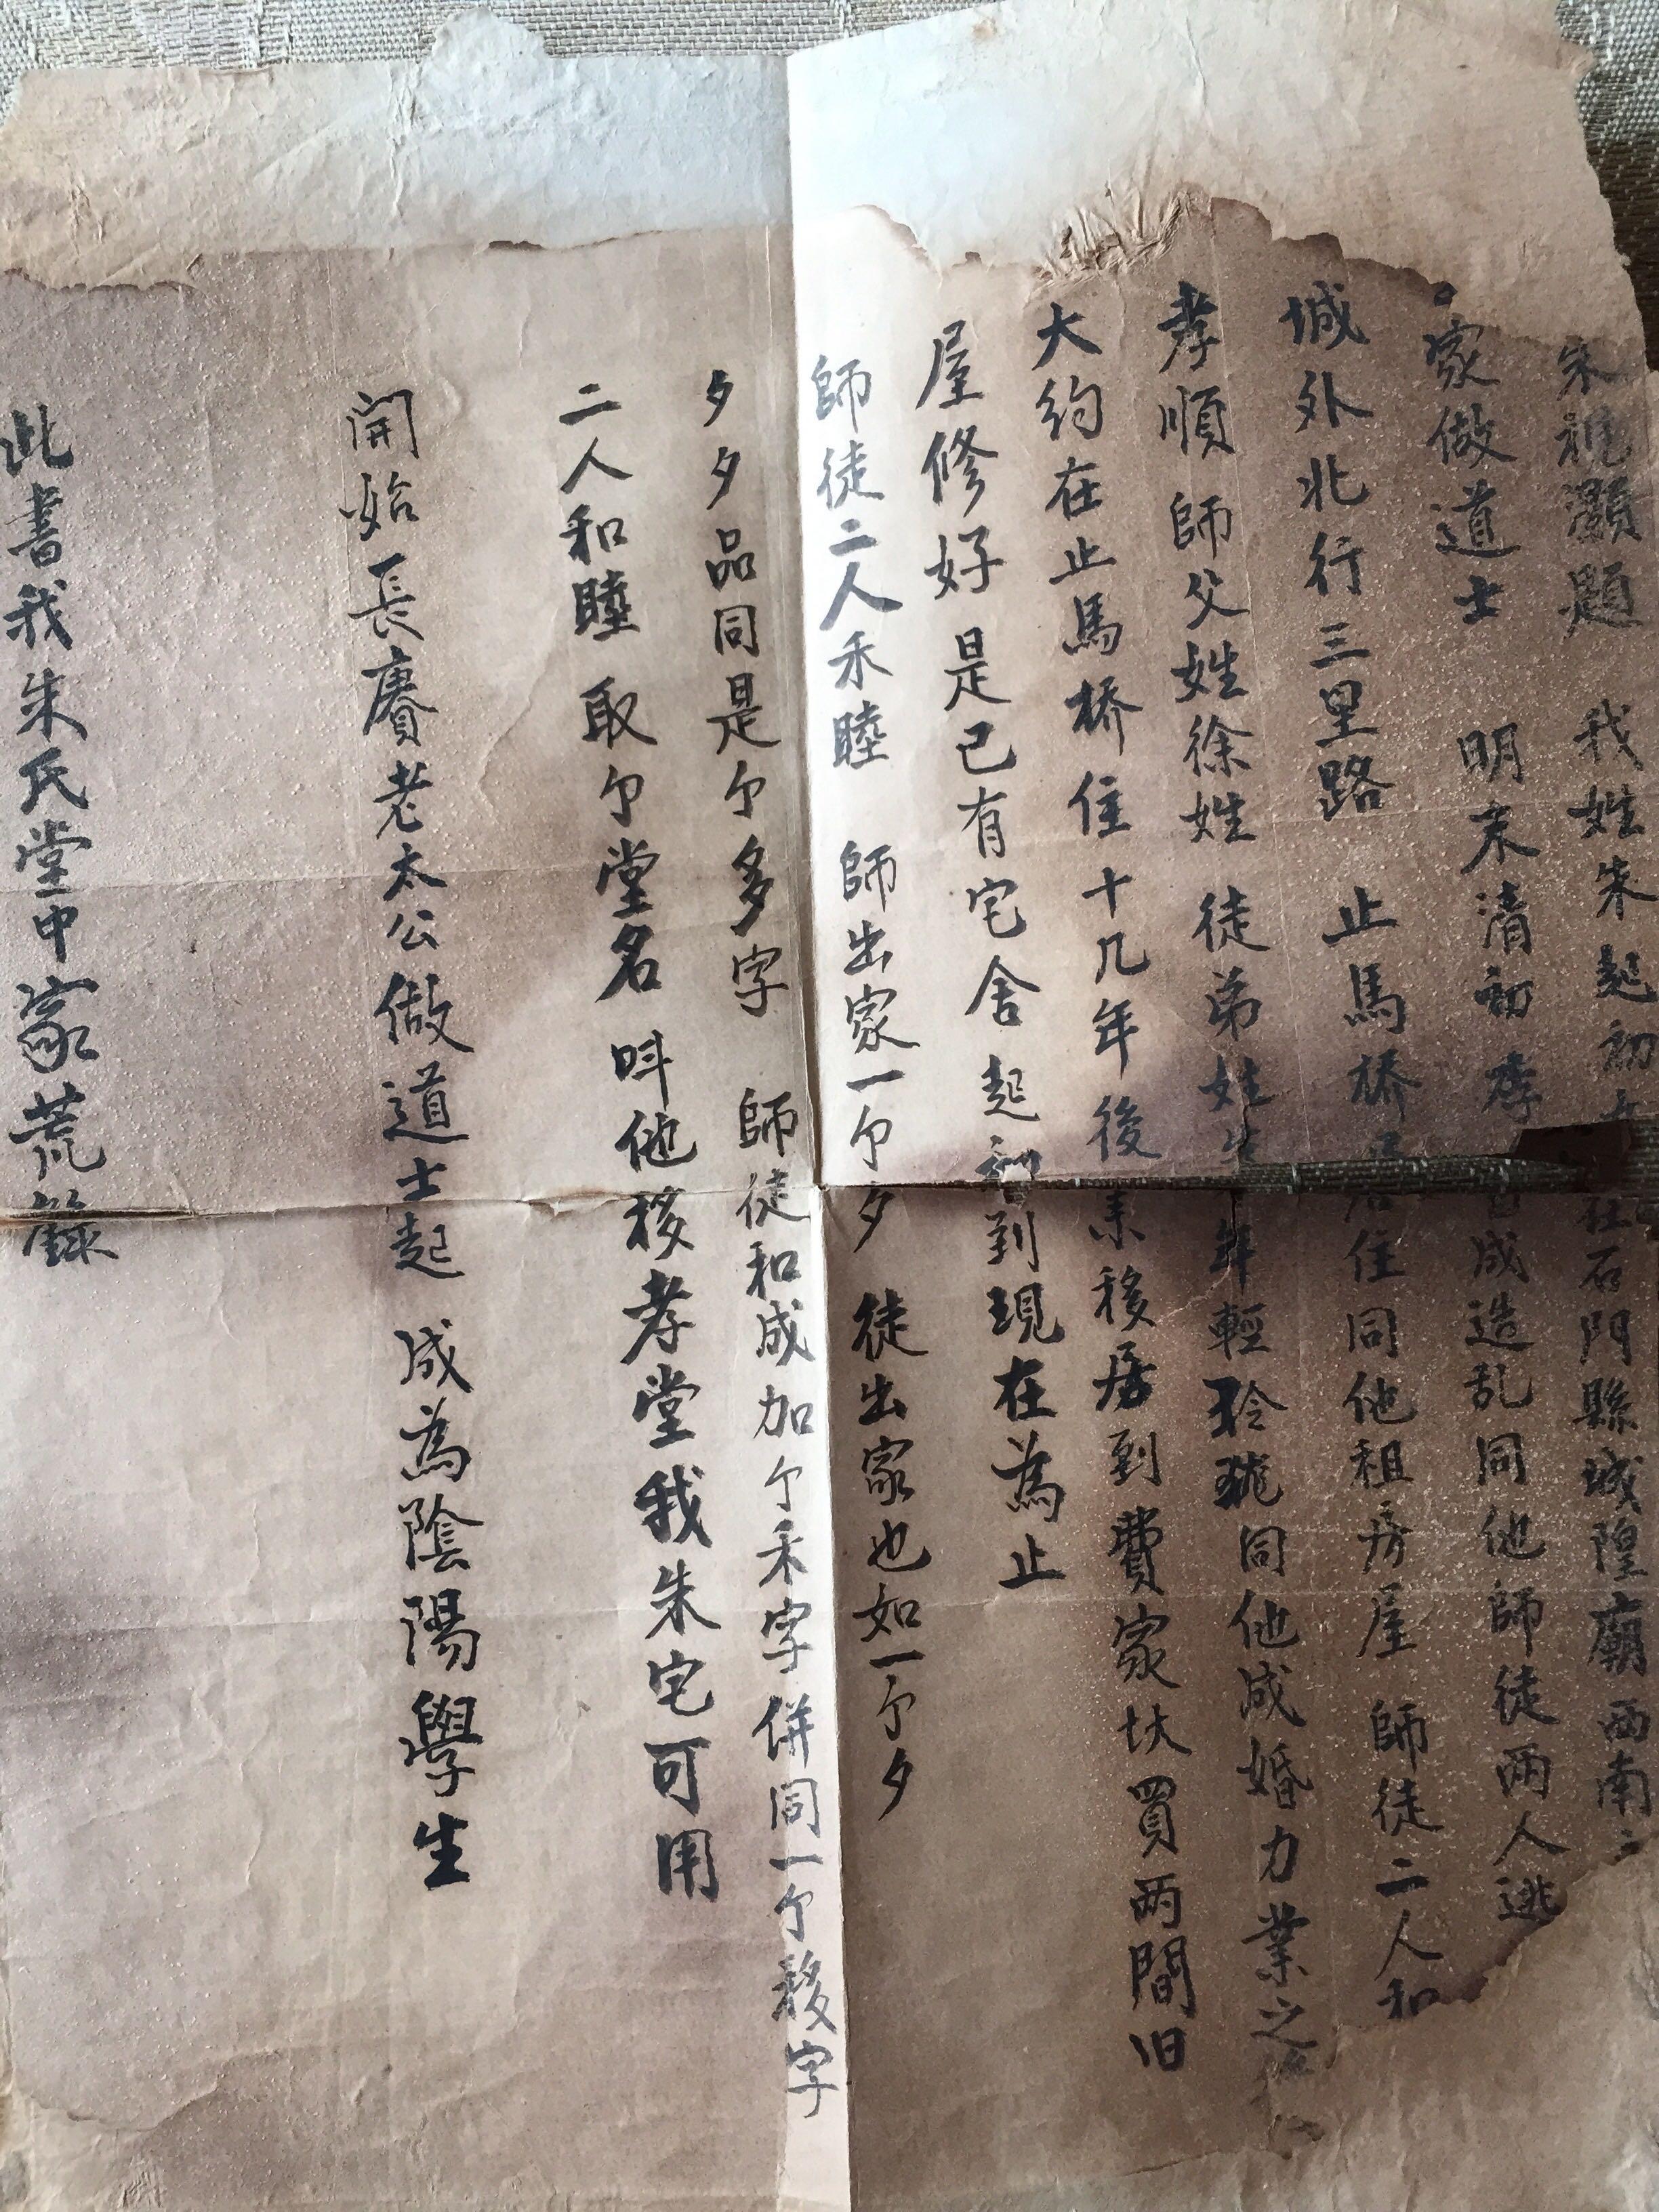 朱視灝題 我姓朱起初在石門縣城隍廟西南二
家做道士 明末清初李自成造乱同他師徒两人逃
城外北行三里路 止馬橋居住同他租房屋 師徒二人和
孝順 師父姓徐姓 徒弟姓朱年輕聆珑同他成婚力業之
大約在止馬橋住十几年後来移居到費家坎買两間旧
屋修好 是已有宅舍 起初到現在為止
師徒二人禾睦 師出家一个夕 徒出家也如一个夕
夕夕品同是个多字 師徒和成加个禾字併同一个移字
二人和睦 取个堂名 呌他移孝堂我朱宅可用
開始長賡老太公做道士起 成為陰陽學生
此書我朱氏堂中家荒錄